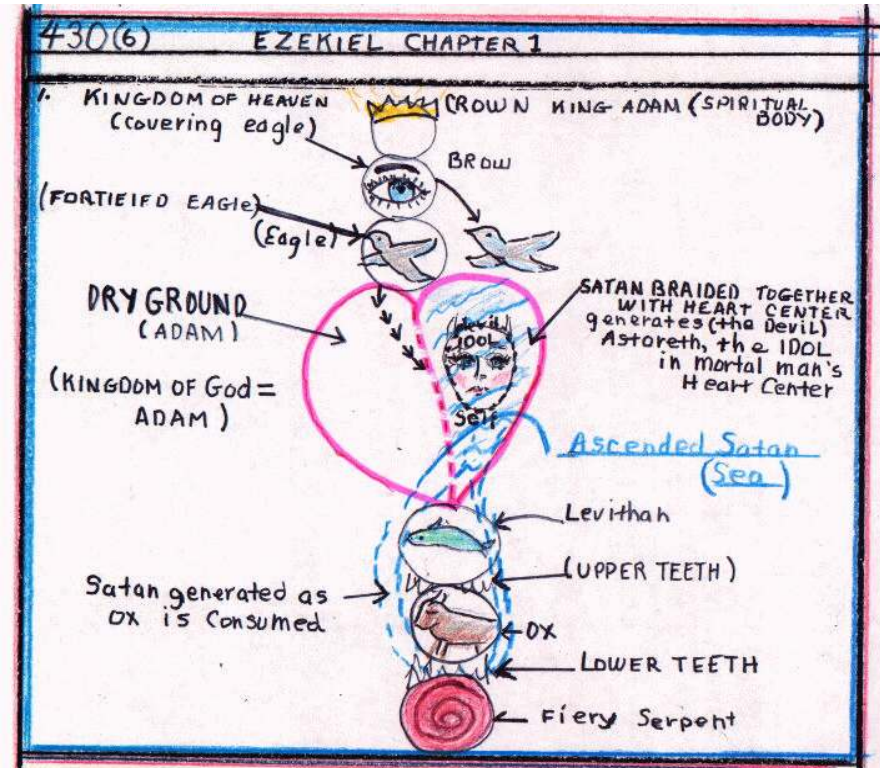 430(6) EZEKIEL CHAPTER 1
1. KINGDOM OF HEAVEN
(covering eagle)
CROWN KING ADAM (SPIRITUAL
BODY)
BROW
(FORTIEIFD EAGLE)
(Eagle)
DRY GROUND
(ADAM)
(KINGDOM OF God =
ADAM)
devil
IDOL
Self
SATAN BRAIDED TOGETHER
WITH HEART CENTER
generates (the Devil)
Astoreth, the IDOL
in mortal man's
Heart Center
Ascended Satan
(Sea)
Levithah
(UPPER TEETH)
Satan generated as
OX is Consumed
OX
LOWER TEETH
Fiery Serpent